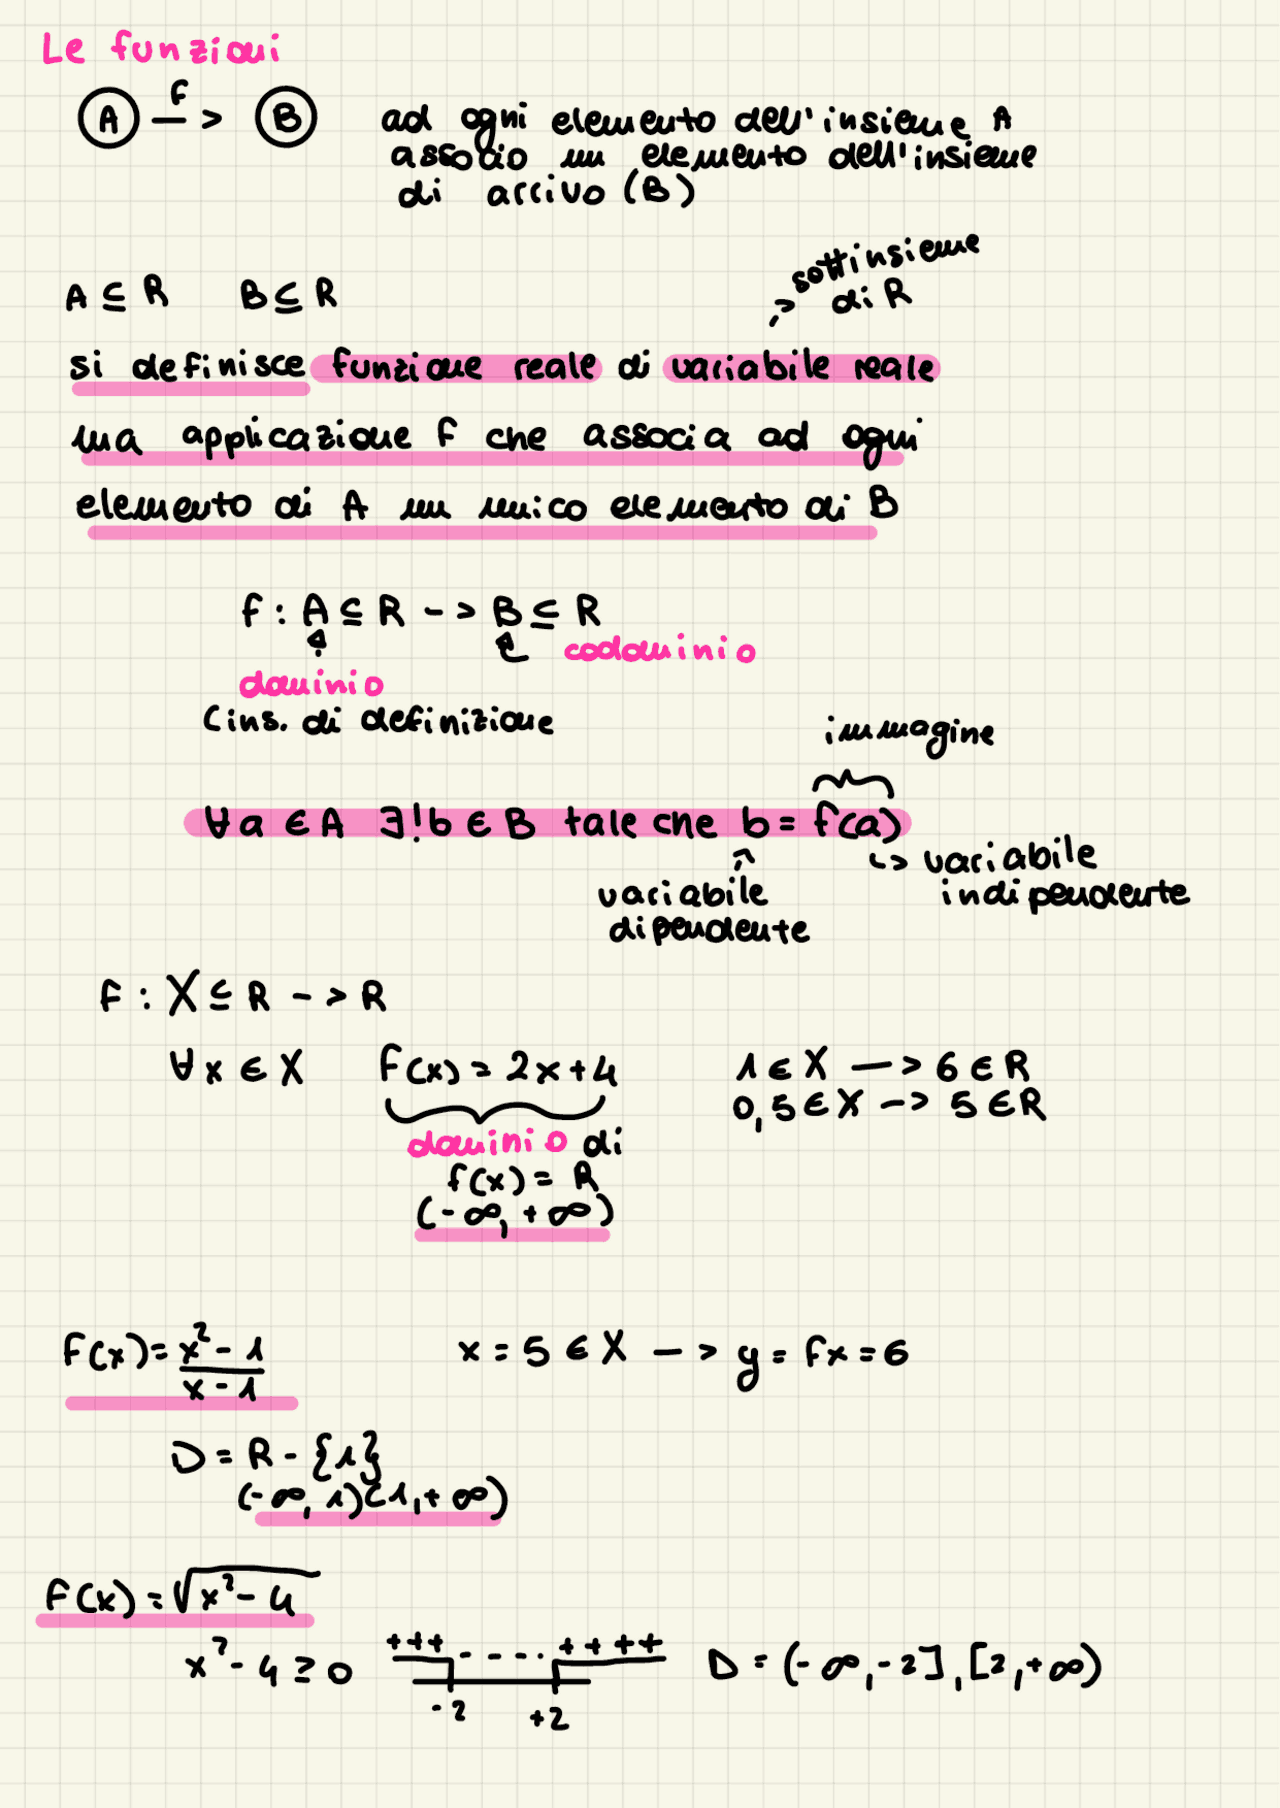 Le funzioni
A f –> B
ad ogni elemento dell'insieme A
associo un elemento dell'insieme
di arrivo (B)
A ⊆ R B ⊆ R
-> sottinsieme
di R
si definisce funzione reale di variabile reale
una applicazione f che associa ad ogni
elemento di A un unico elemento di B
f : A ⊆ R -> B ⊆ R
codominio
dominio
(ins. di definizione
immagine
∀ a ∈ A ∃! b ∈ B tale che b = f(a)
variabile
dipendente
-> variabile
indipendente
f : X ⊆ R -> R
∀ x ∈ X f(x) = 2x + 4 1 ∈ X –> 6 ∈ R
0,5 ∈ X -> 5 ∈ R
dominio di
f(x) = R
(-∞, +∞)
f(x) = x² - 1 / x - 1 x = 5 ∈ X -> y = fx = 6
D = R - {1}
(-∞, 1)(1, +∞)
f(x) = √x² - 4
x² - 4 ≥ 0 +++ - - - - ++++ D = (-∞, -2], [2, +∞)
-2 +2